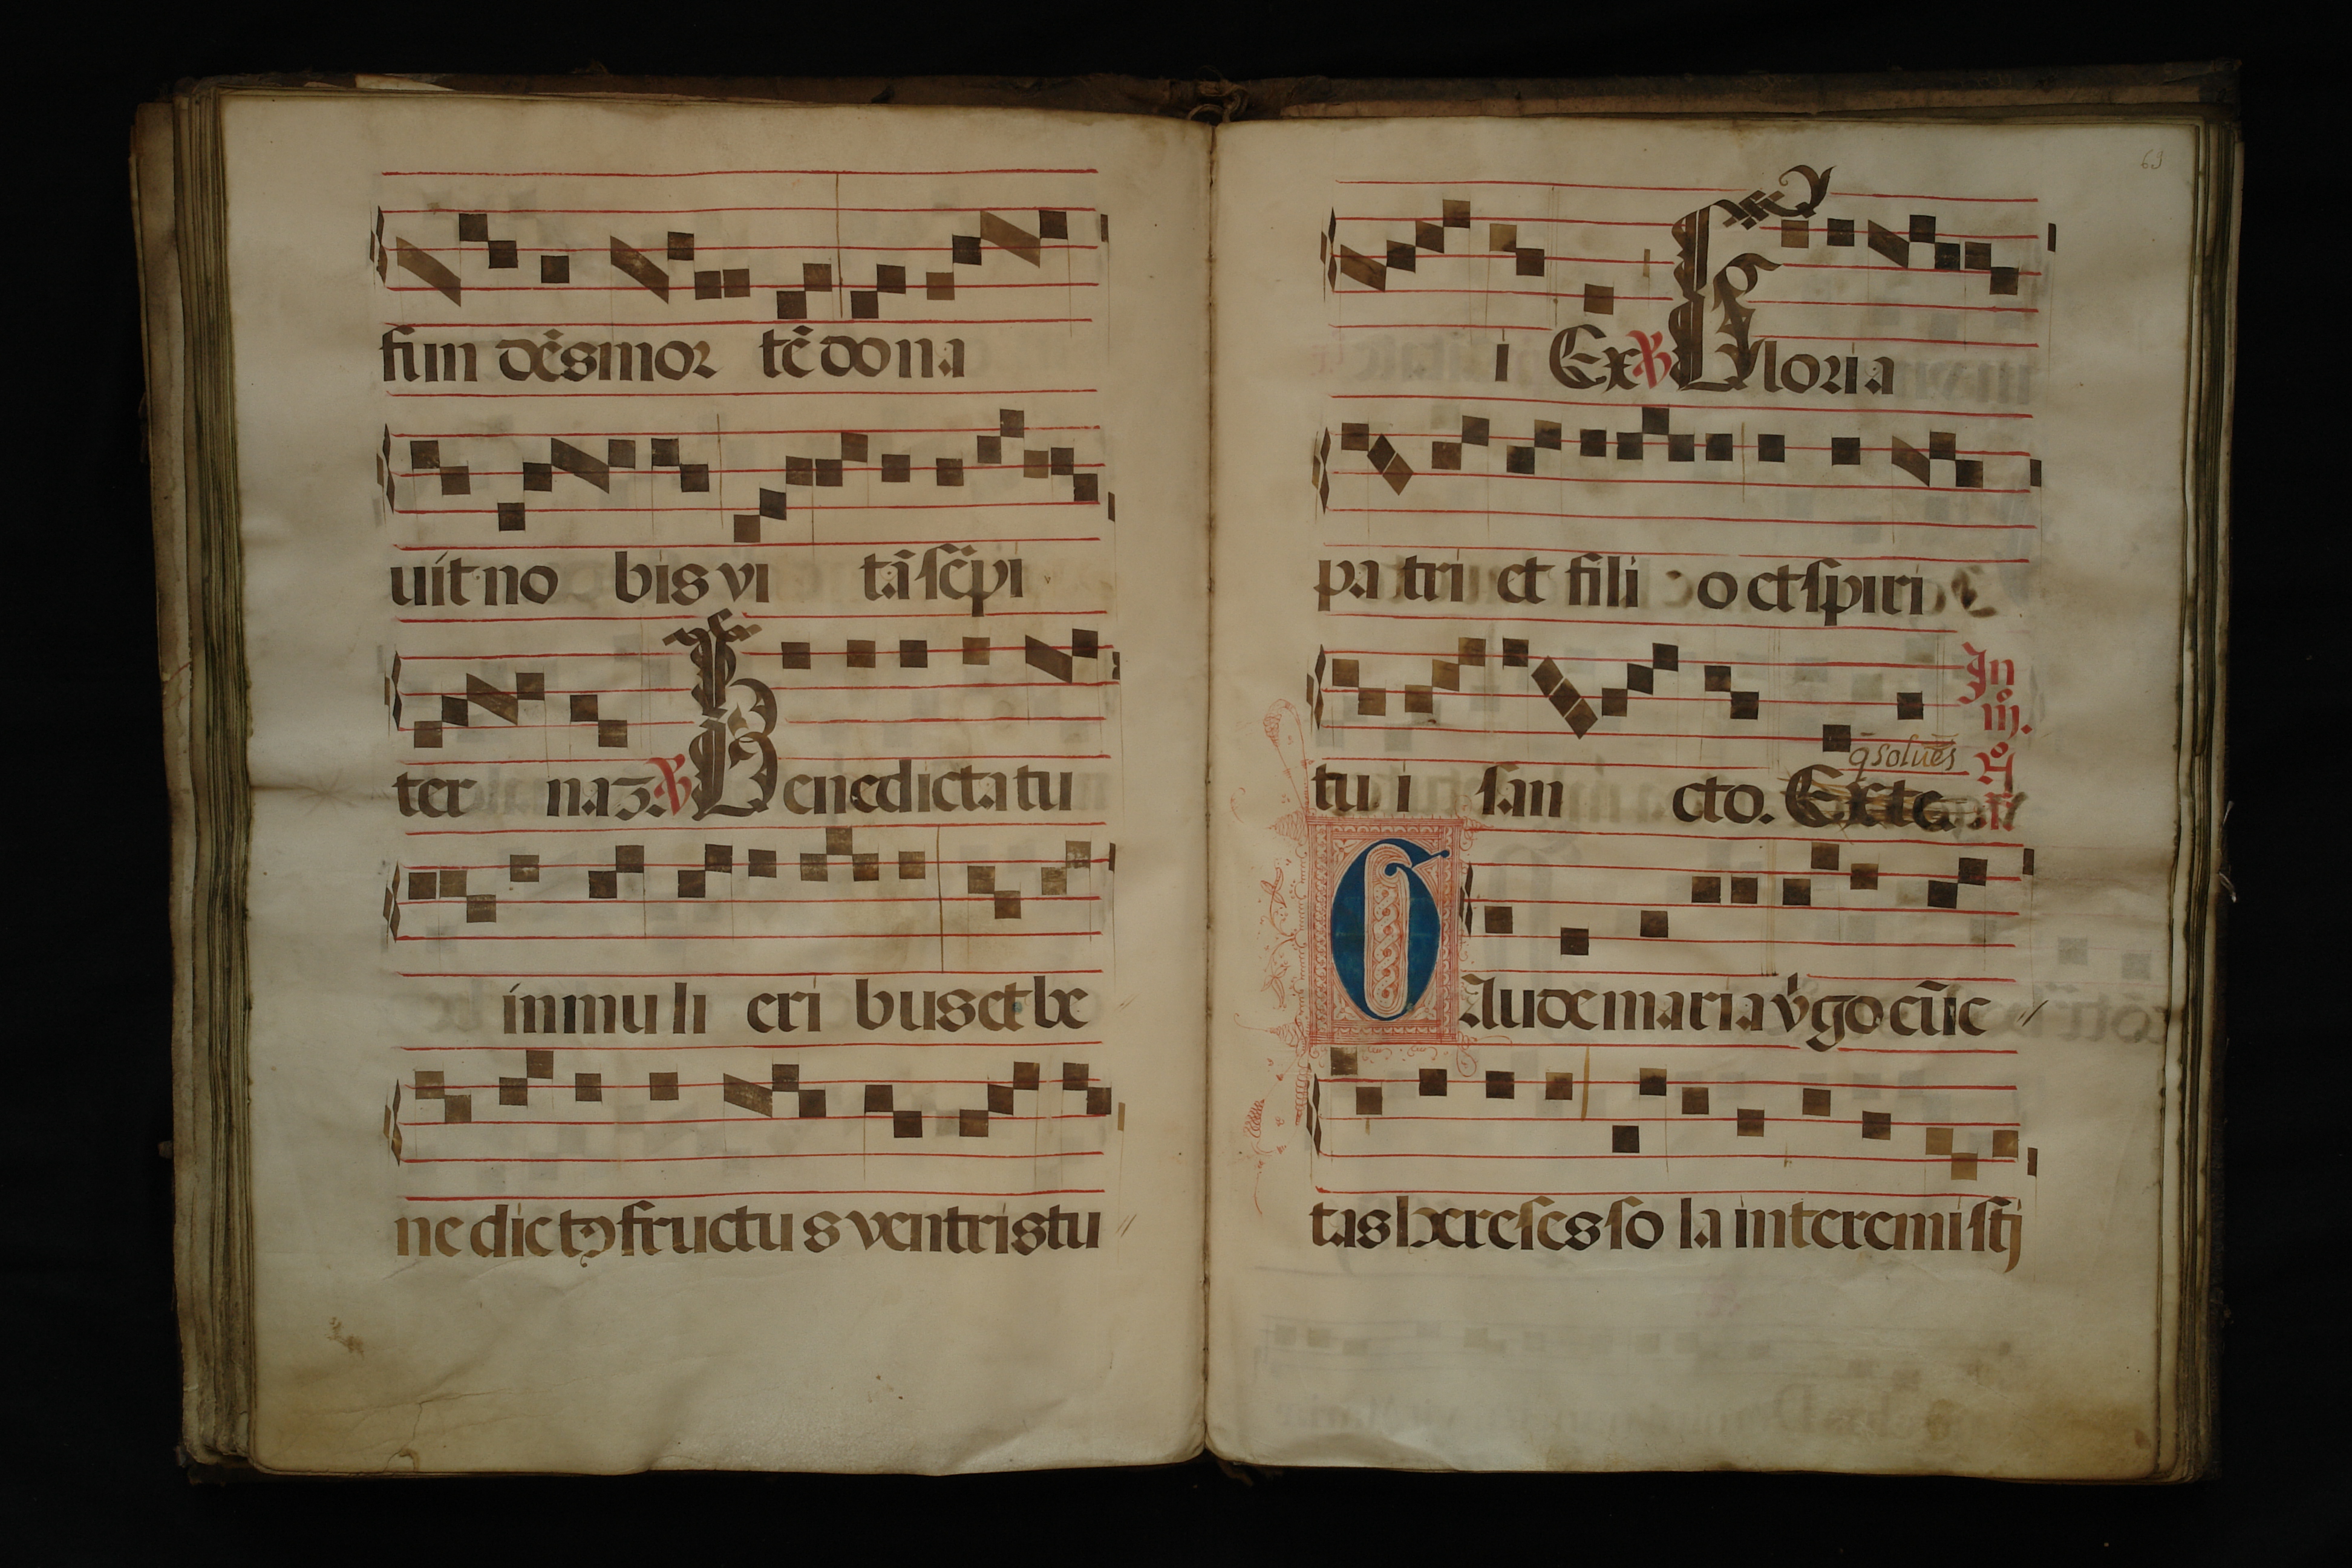 fun dēs mor tē dona
uit no bis vi tā sēpi
ter naʒ. ℟ Benedicta tu
in mu li eri bus et be
ne dictꝰ fructus ventris tu
63
i Ex ℟ Gloria
pa tri et fili o et spiri
tu i san cto. Ex te
q̄ solues
In
iij.
n.
Gaude maria v̄go cūc
tas hereses so la interemisti